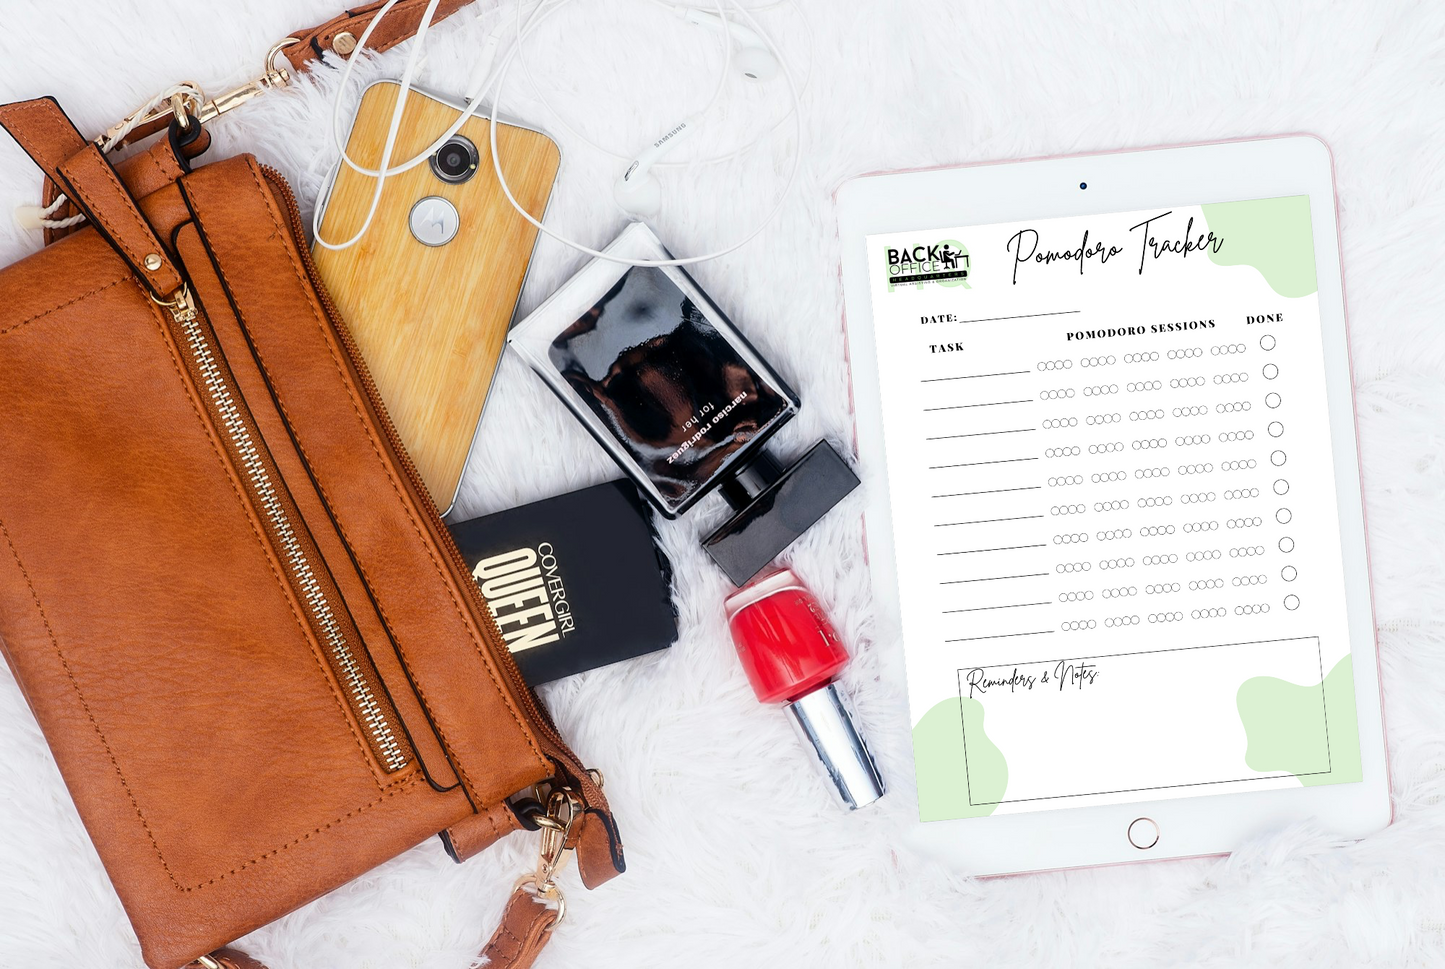 SAMSUNG
narciso rodriguez
for her
COVERGIRL
QUEEN
BACK
OFFICE
HEADQUARTERS
Pomodoro Tracker
DATE:
TASK
POMODORO SESSIONS
DONE
Reminders & Notes: